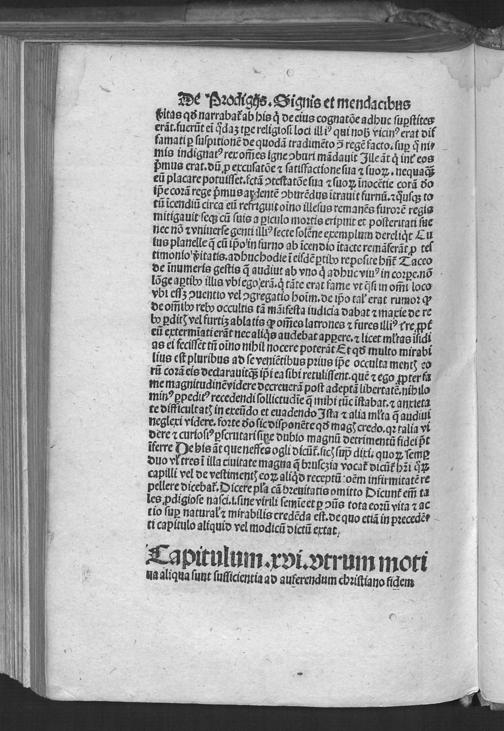 De Prodigijs. Signis et mendacibus
ṽitas qḋ narrabāt ab his q̄ de eius cognatōe adhuc sup̲stites
erāt. fuerūt em̄ q̄daʒ tp̲re religiosi loci illiꝰ qui nob̄ vicinꝰ erat dif
famati p̲ suspitionē de quodā tradimēto ɔ̄ regē facto. sup̲ q̄ ni
mis indignatꝰ rex om̄es igne ɔburi mādauit Ille āt q̄ int̾ eos
p̾mus erat. dū p̲ excusatōe ⁊ satisfactione sua ⁊ suoꝝ. neq̄uaꝗ
eū placare potuisset. fctā ɔtestatōe sua ⁊ suoꝝ inocētie corā do
ip̄e corā rege p̾mus arđentē ɔburēdus itrauit furnū. ⁊ quisꝗ to
tū incendiū circa eū refriguit oīno illesus remanēs furorē regis
mitigauit seqꝫ cū suis a p̲iculo mortis eripuit et posteritati sue
nec nō ⁊ vniuerse genti illiꝰ secte solēne exemplum dereliq̄t Cu
ius planelle q̄ cū ip̄o in furno ab īcendio ītacte remāserāt p̲ tes
timonio ṽitatis. adhuc hodie ī eisdē p̲tibꝰ reposite hn̄t Taceo
de innumeris gestis q̄ audiui ab vno q̄ adhuc viuꝰ in corp̲e. nō
lōge a p̲tibꝰ illis vbi ego erā. q̄ tāte erat fame vt q̄si in om̄i loco
vbi esset ɔuentio vel ɔgregatio hoīm. de ip̄o tal̾ erat rumor ꝙ
de om̄ibꝰ rebꝰ occultis tā māifesta iudicia dabat ⁊ maxīe de re
bꝰ p̲ditꝭ vel furtiʒ ablatis ꝙ om̄es latrones ⁊ fures illiꝰ t̾re. p̲pt̾
eū extermīati erāt nec aliq̄s audebat app̲ere. ⁊ licet ml̾tas īsidi
as ei fecissēt tn̄ oīno nihil nocere poterāt Et qḋ multo mirabi
lius est pluribus ad se veniētibus prius ip̄e occulta mentꝭ eo
rū corā eis declarauit qꝫ ip̄i ea sibi retulissent. quē ⁊ ego p̲pter fa
me magnitudinē videre decreuerā post adeptā libertatē. nihilo
minꝰ p̲peditꝰ recedendi sollicitudīe q̄ mihi tūc īstabat. ⁊ anxieta
te difficultatꝭ in exeūdo et euadendo Ista ⁊ alia ml̾ta q̄ audiui
neglexi videre. forte do sic disponēte qḋ magꝭ credo. qꝫ talia vi
dere ⁊ curiosiꝰ p̲scrutari sine dubio magnū detrimentū fidei p̄t
īferre De his āt que nesses ogli dicūt̾. sic sup̲ dixi. quoꝝ semp̲
duo vl̾ tres ī illa ciuitate magna q̄ brusezia vocat̾ dicūt̾ hr̄i q̄ꝝ
capilli vel de vestimentꝭ eoꝝ aliqḋ receptū oēm infirmitatē re
pellere dicebat̾. Dicere p̲la cā breuitatis omitto Dicunt̾ em̄ ta
les p̲digiose nasci. s. sine virili semīe et p̲ ɔn̄s tota eorū vita ⁊ ac
tio sup̲ natural̾ ⁊ mirabilis credēda est. de quo etiā in preceden
ti capitulo aliquid vel modicū dictū extat
Capitulum .xvi. vtrum moti
ua aliqua sunt sufficientia ad auferendum christiano fidem